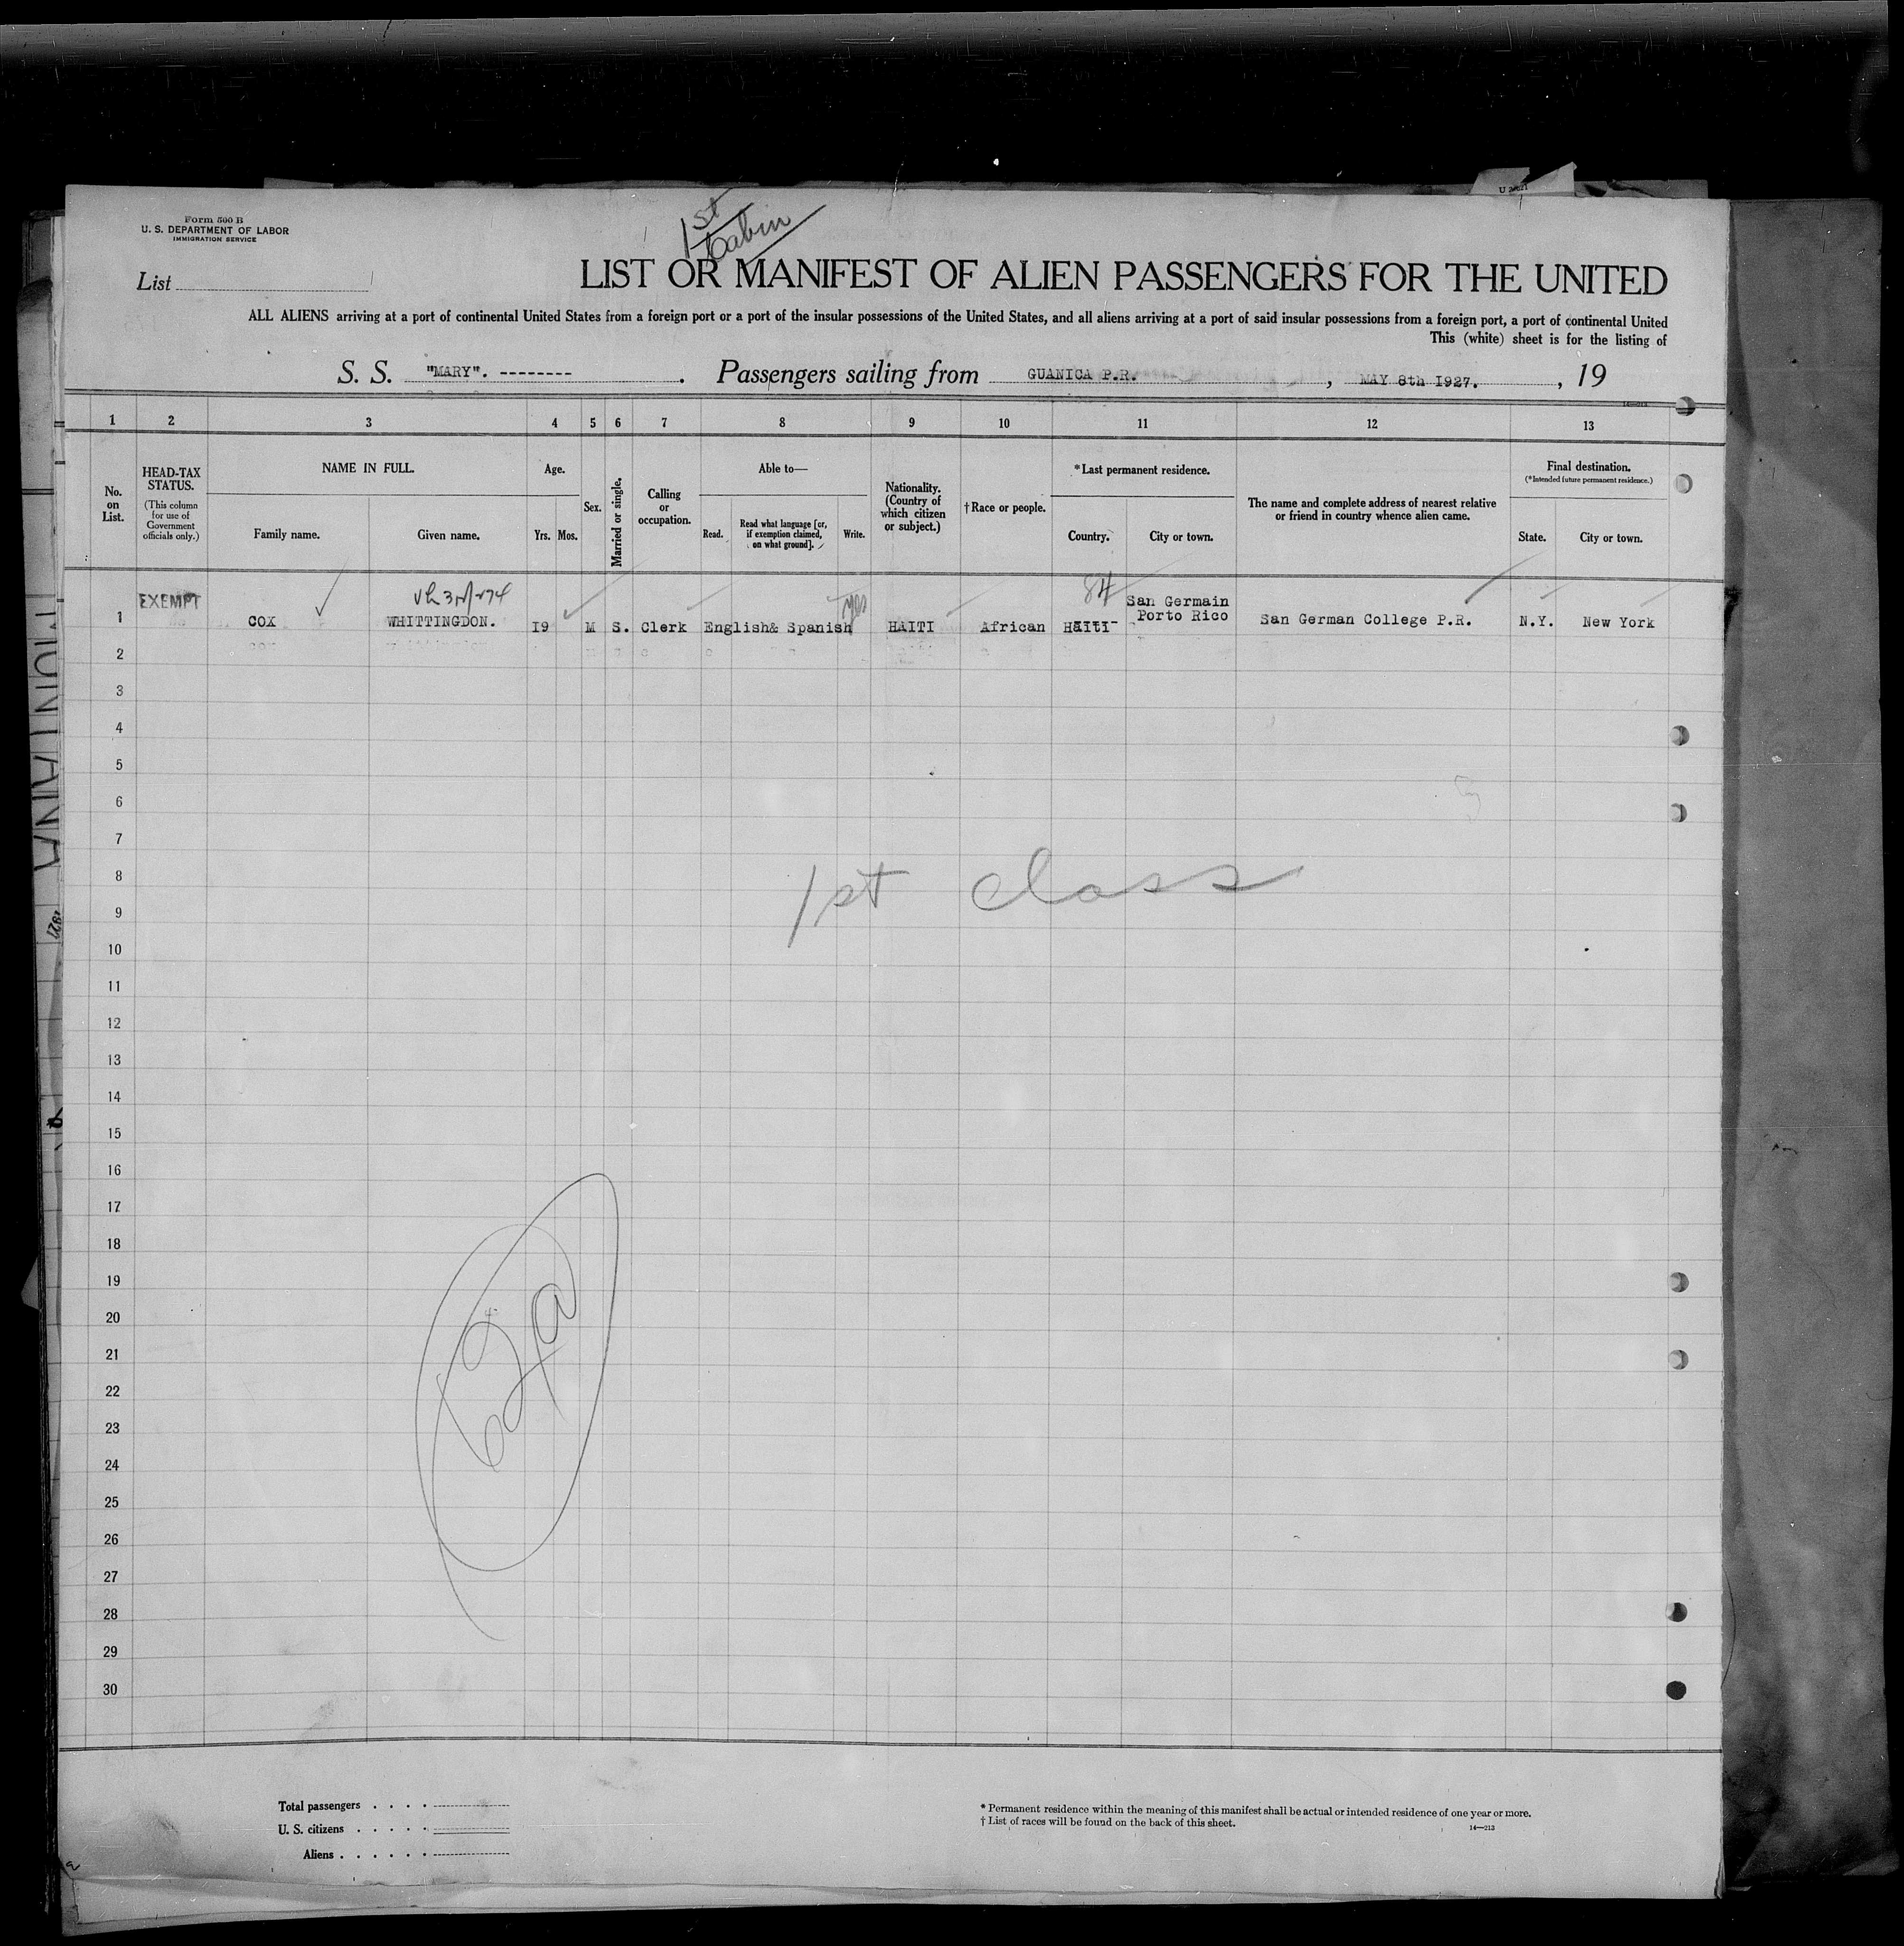 Form 500 B
U. S. DEPARTMENT OF LABOR
IMMIGRATION SERVICE
1st
Cabin
List
LIST OR MANIFEST OF ALIEN PASSENGERS FOR THE UNITED
ALL ALIENS arriving at a port of continental United States from a foreign port or a port of the insular possessions of the United States, and all aliens arriving at a port of said insular possessions from a foreign port, a port of continental United
This (white) sheet is for the listing of
S. S. "MARY". -------- . Passengers sailing from GUANICA P.R. , MAY 8th I927. , 19
1 2 3 4 5 6 7 8 9 10 11 12 13
No. on List.
HEAD-TAX STATUS.
(This column for use of Government officials only.)
NAME IN FULL.
Family name. Given name.
Age.
Yrs. Mos.
Sex.
Married or single.
Calling or occupation.
Able to—
Read. Read what language [or, if exemption claimed, on what ground]. Write.
Nationality. (Country of which citizen or subject.)
† Race or people.
* Last permanent residence.
Country. City or town.
The name and complete address of nearest relative or friend in country whence alien came.
Final destination.
(* Intended future permanent residence.)
State. City or town.
84
1 EXEMPT COX WHITTINGDON. I9 M S. Clerk English& Spanish yes HAITI African HAITI San Germain Porto Rico San German College P.R. N.Y. New York
2
3
4
5
6
7
8
9
10
11
12
13
14
15
16
17
18
19
20
21
22
23
24
25
26
27
28
29
30
1st class
Total passengers . . . .
U. S. citizens . . . . .
Aliens . . . . . .
* Permanent residence within the meaning of this manifest shall be actual or intended residence of one year or more.
† List of races will be found on the back of this sheet.
14—213